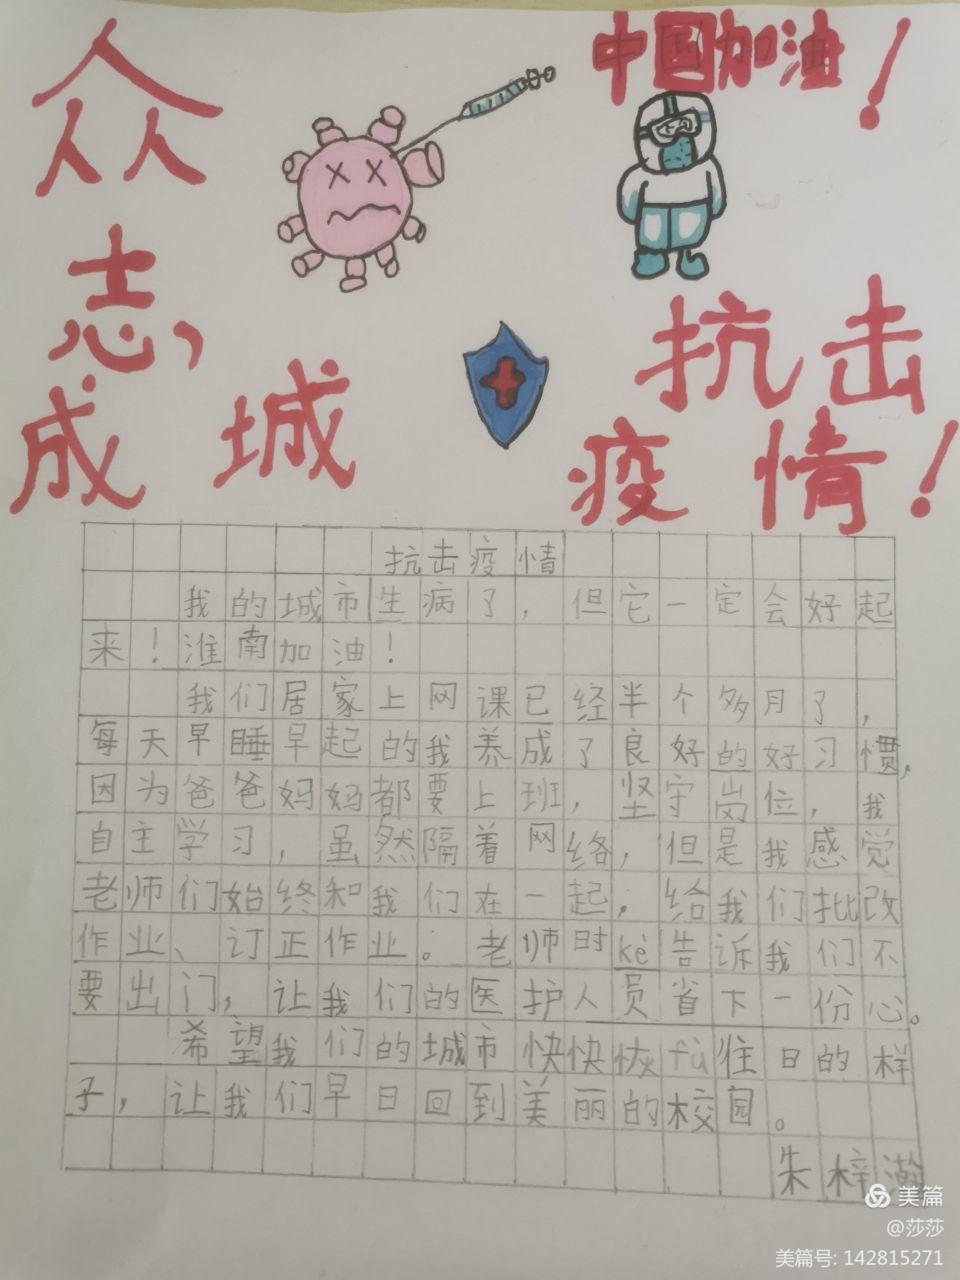 众志成城，
中国加油！
抗击疫情！
抗击疫情
我的城市生病了，但它一定会好起
来！淮南加油！
我们居家上网课已经半个多月了，
每天早睡早起的我养成了良好的好习惯，
因为爸爸妈妈都要上班，坚守岗位，我
自主学习，虽然隔着网络，但是我感觉
老师们始终和我们在一起，给我们批改
作业、订正作业。老师时kè告诉我们不
要出门，让我们的医护人员省下一份心。
希望我们的城市快快恢fù往日的样
子，让我们早日回到美丽的校园。
朱梓瀚
美篇
@莎莎
美篇号: 142815271